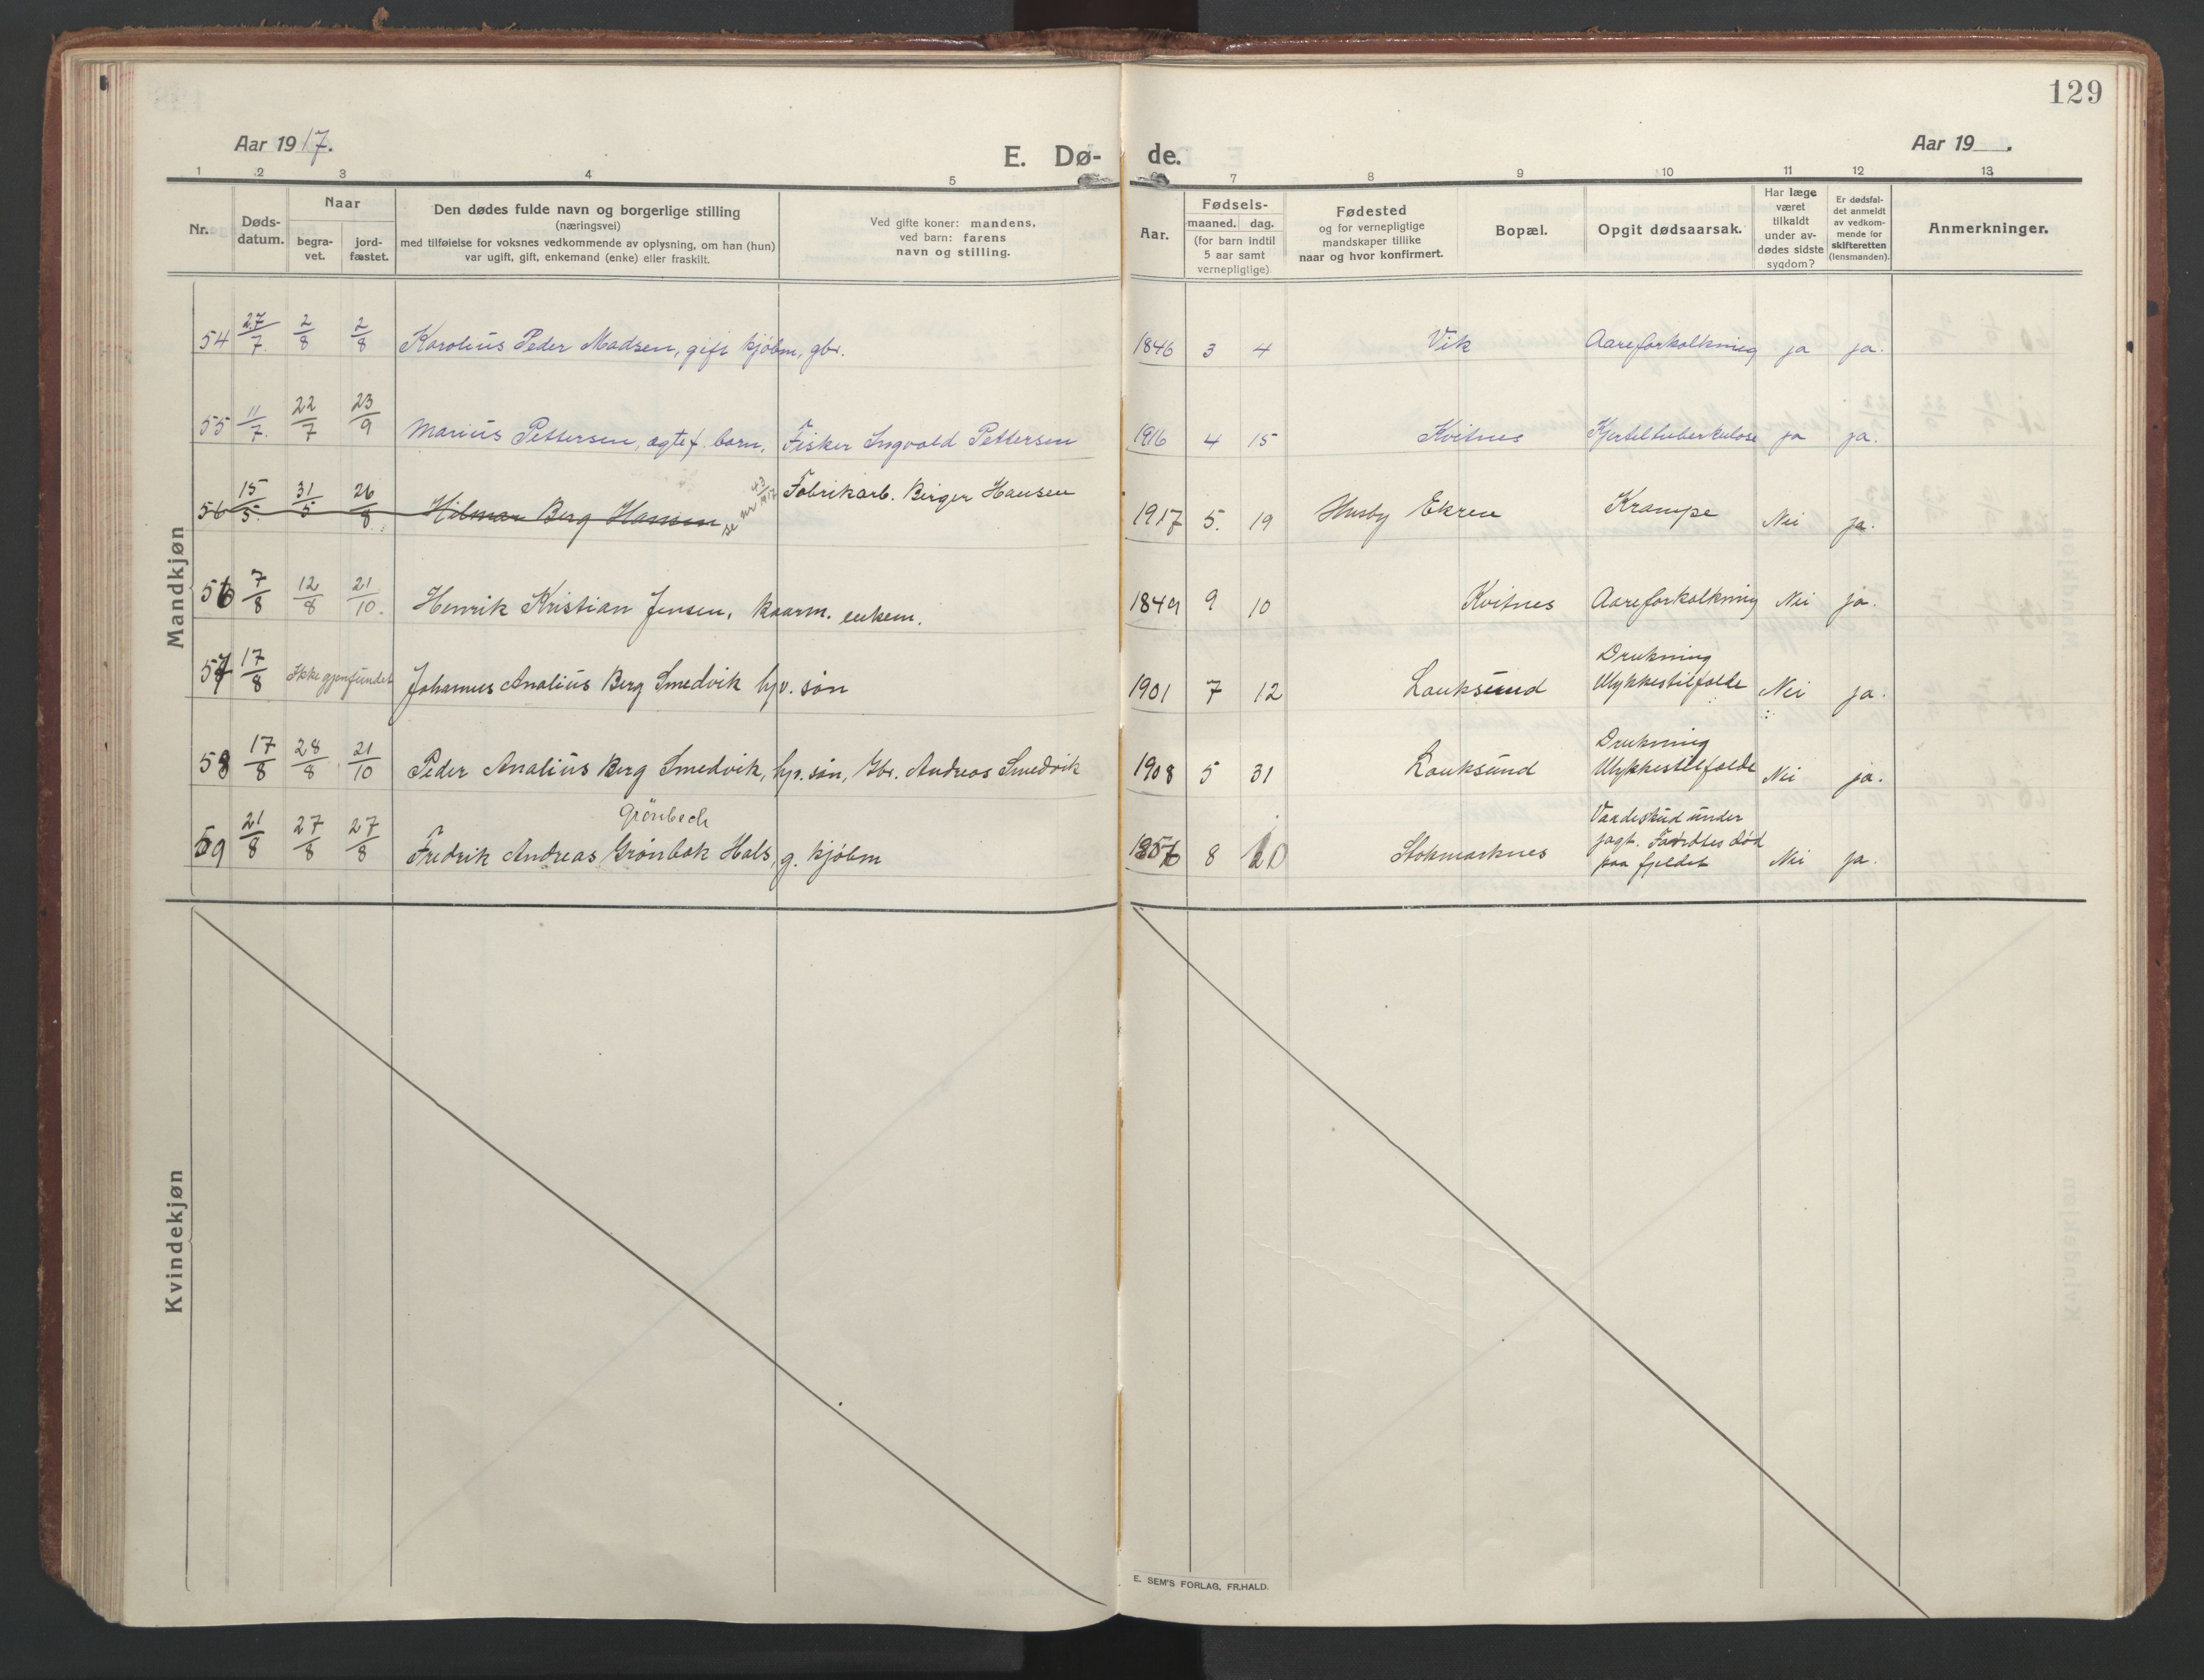 129
Aar 1917.
E. Dø- de.
Aar 19 .
1 2 3 4 5 7 8 9 10 11 12 13
Nr.
Døds-
datum.
Naar
begra-
vet.
jord-
fæstet.
Den dødes fulde navn og borgerlige stilling
(næringsvei)
med tilføielse for voksnes vedkommende av oplysning, om han (hun)
var ugift, gift, enkemand (enke) eller fraskilt.
Ved gifte koner: mandens,
ved barn: farens
navn og stilling.
Aar.
Fødsels-
maaned. dag.
(for barn indtil
5 aar samt
vernepligtige)
Fødested
og for vernepligtige
mandskaper tillike
naar og hvor konfirmert.
Bopæl.
Opgit dødsaarsak.
Har læge
været
tilkaldt
under av-
dødes sidste
sygdom?
Er dødsfal-
det anmeldt
av vedkom-
mende for
skifteretten
(lensmanden).
Anmerkninger.
Mandkjøn
54 27/7. 2/8 2/8 Karolius Peder Madsen, gift kjøbm, gbr. 1846 3 4 Vik Aareforkalkning ja ja.
55 11/7. 22/7 23/9 Marius Pettersen, ægtef. barn. Fisker Ingvald Pettersen 1916 4 15 Kvitnes Kjerteltuberkulose ja ja.
56 15/5. 31/5 26/8. Hilmar Berg Hansen, se nr 43/1917 Fabrikarb. Birger Hansen 1917 5. 19 Husby Ekren Krampe Nei ja.
56 7/8 12/8 21/10. Henrik Kristian Jensen, kaarm. enkem. 1849 9 10 Kvitnes Aareforkalkning Nei ja.
57 17/8 Ikke gjenfundet Johannes Analius Berg Smedvik hjv. søn 1901 7 12 Lauksund Drukning
Ulykkestilfælde Nei ja.
58 17/8 28/8 21/10 Peder Analius Berg Smedvik, hjv. søn, Gbr. Andreas Smedvik 1908 5 31 Lauksund Drukning
Ulykkestilfælde Nei ja.
Grönbech
59 21/8 27/8 27/8 Fredrik Andreas Grønbæk Hals, g. kjøbm 1856 8 10 Stokmarknes Vaadeskud under
jagt. Fandtes død
paa fjeldet Nei ja.
Kvindekjøn
E. SEM'S FORLAG, FR.HALD.